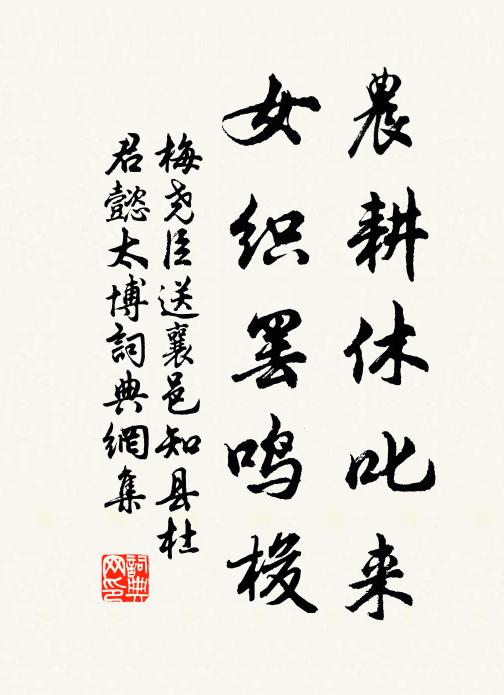 農耕休叱来
女织罢鸣梭
梅尧臣送襄邑知县杜
君懿太博詞典網集
詞典网印